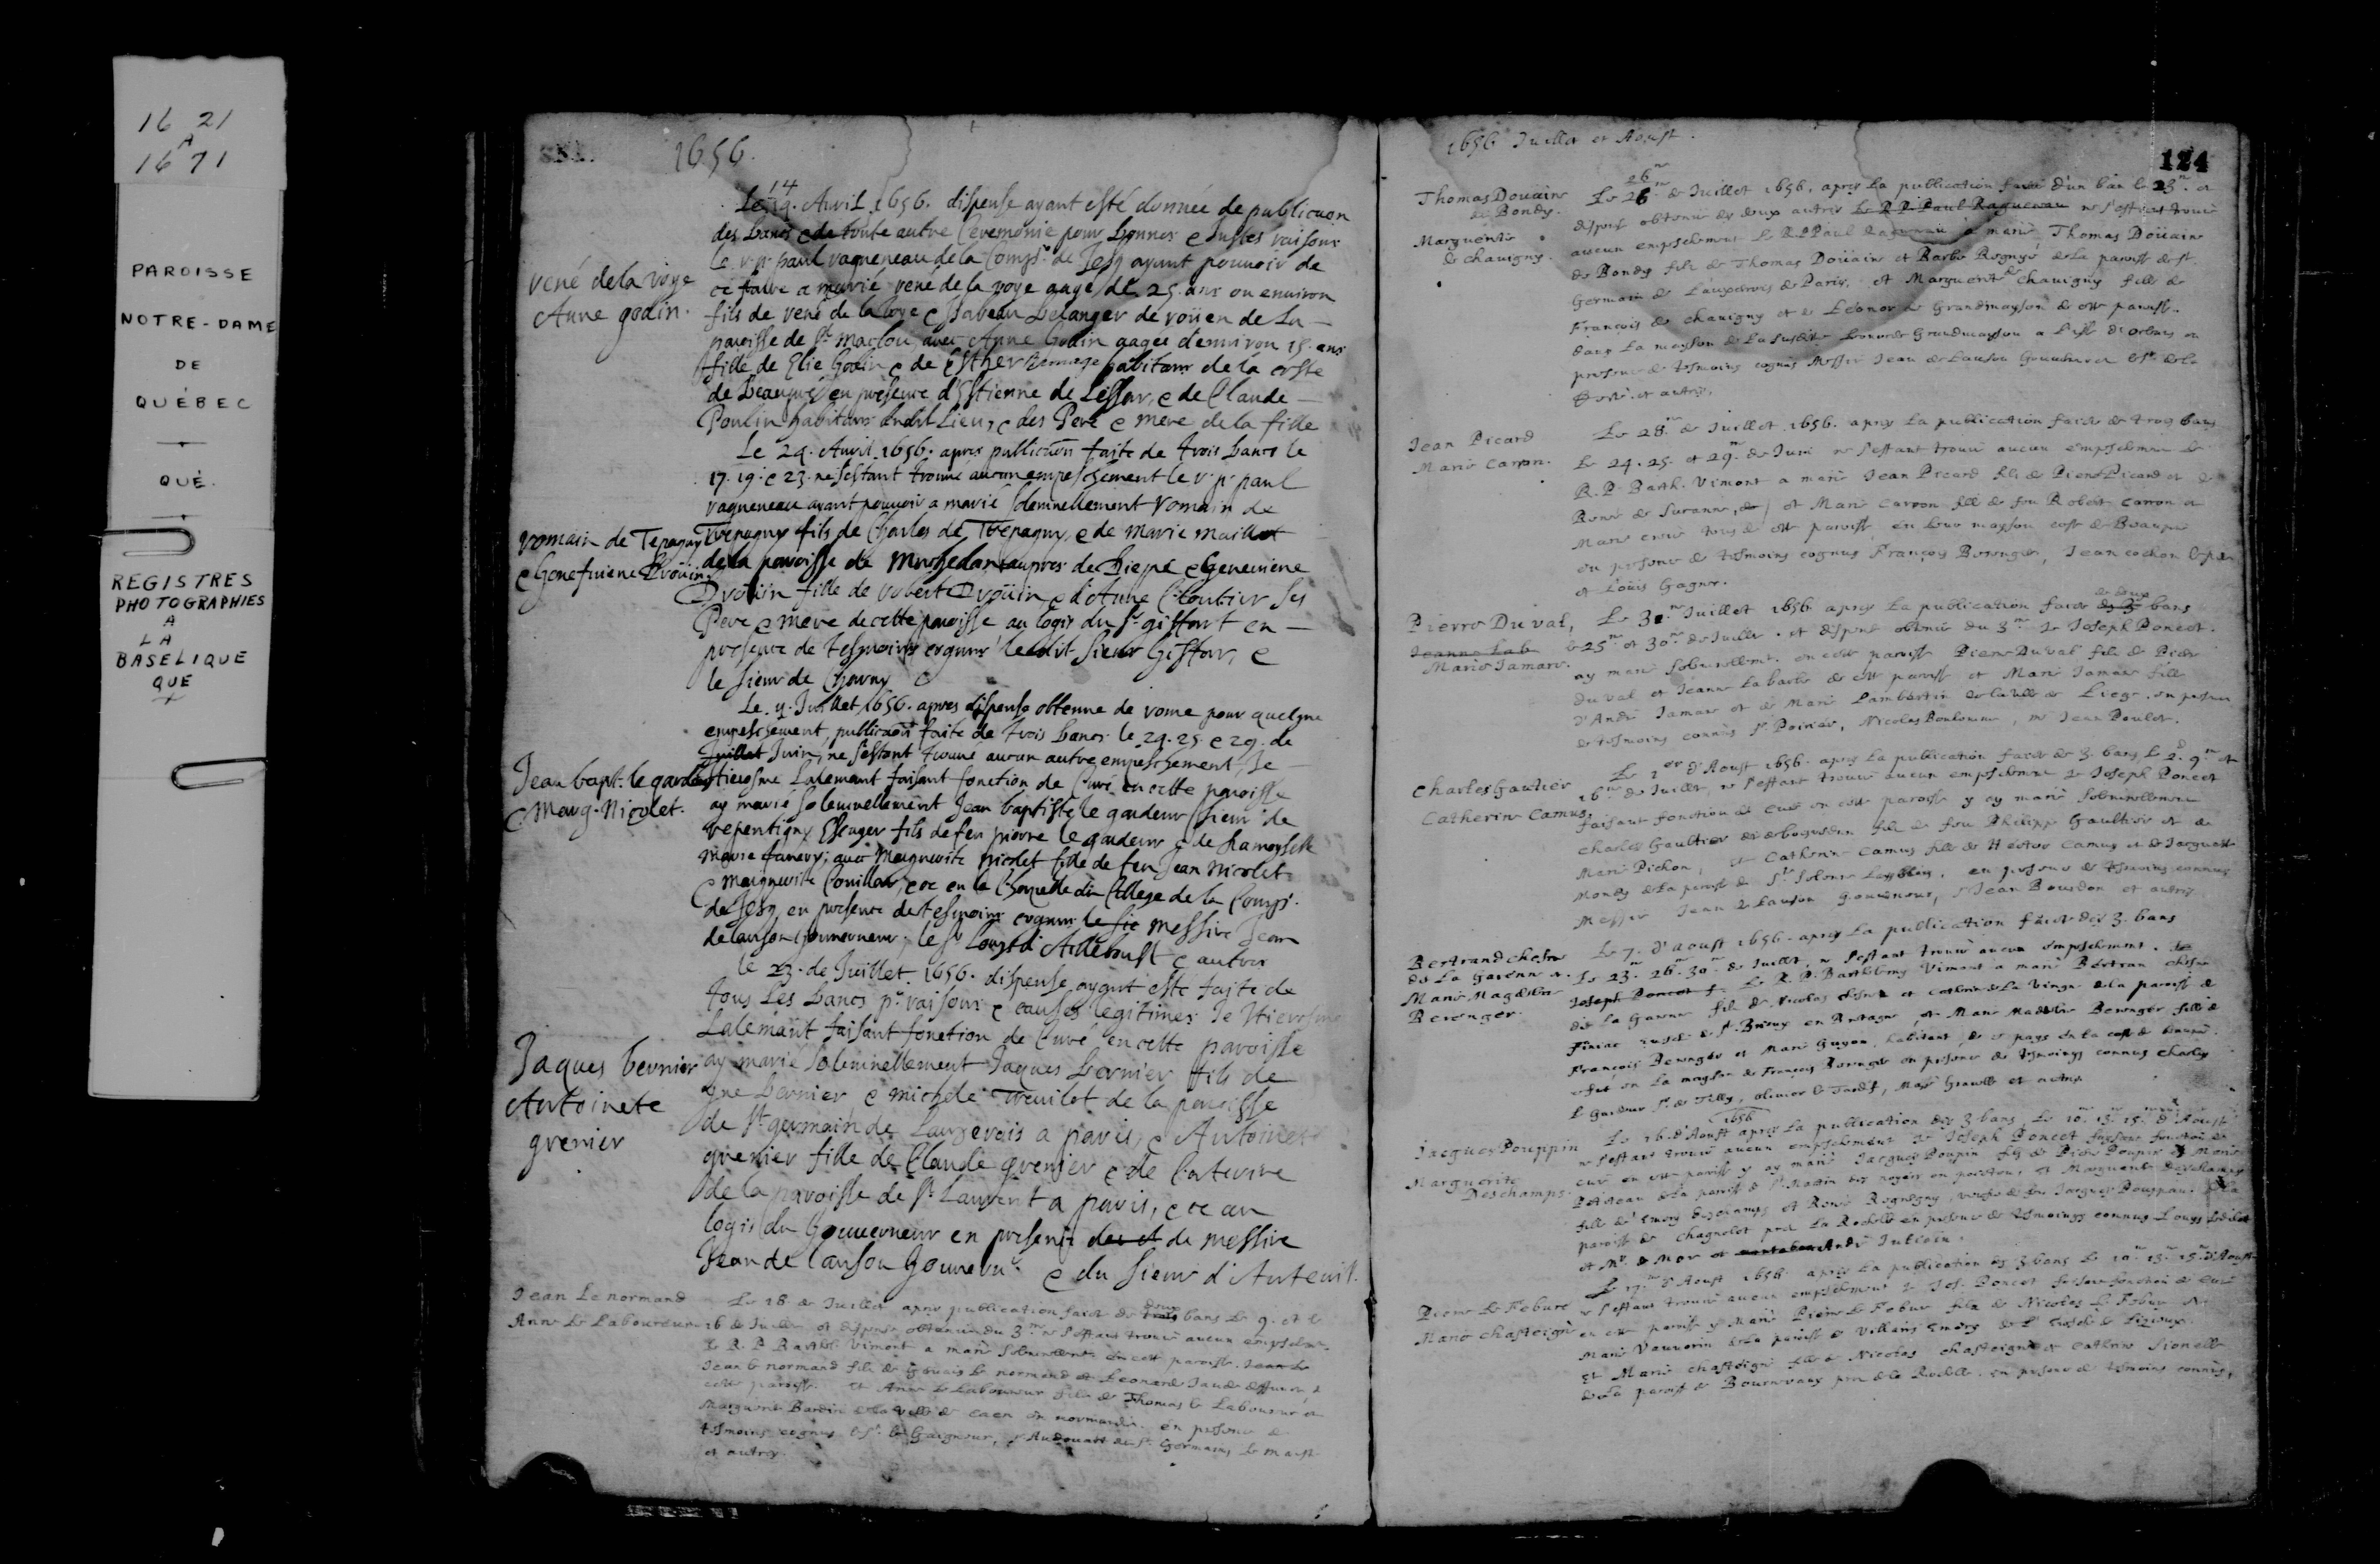 16 21
A
16 71
PAROISSE
NOTRE-DAME
DE
QUÉBEC
QUÉ.
REGISTRES
PHOTOGRAPHIES
A
LA
BASELIQUE
QUE
1656.
14
Le 19. Avril 1656. dispense ayant esté donnée de publicaon
des bancs e de toute autre Ceremonie pour bonnes e justes raisons
Le r. p. paul ragueneau de la Comp. de Jesus ayant pouvoir de
ce faire a marié rené de la voye aagé de 25 ans ou environ
René de la voye
Anne godin.
fils de rené de la voye e Isabeau belanger de roüen de la
paroisse de St maclou, avec Anne Godin aagee d'environ 15. ans
fille de Elie Godin e de Esther Ramage habitans de la coste
de Beaupré en presence d'Estienne de Lessar, e de Claude
Poulin habitans dudit Lieu, e des Pere e mere de la fille
Le 24. Avril 1656. apres publicaon faite de trois bancs le
17. 19. e 23. ne s'estant trouvé aucun empeschement le r. p. paul
ragueneau ayant pouvoir a marié solemnellement romain de
romain de Trepagny
e Genefviene Droüin.
Trepagny fils de Charles de Trepagny, e de Marie Maillot
de la paroisse de aupres de Diepe e Geneviene
Droüin fille de robert Droüin, e d'Anne Cloutier ses
Pere e mere de cette paroisse au logis du Sr giffart en
presence de tesmoins cognus ledit sieur Giffar, e
le sieur de Charny
Le Juillet 1656. apres dispense obtenue de rome pour quelque
empeschement, publicaon faite de trois bancs le 24. 25. e 29. de
Juillet Juin, ne s'estant trouvé aucun autre empeschement, Je
Jean bapt. le gardeur
e Marg. Nicolet.
Hierosme Lalemant faisant fonction de Curé en cette paroisse
ay marié solemnellement Jean baptiste le gardeur sieur de
repentigny Escuyer fils de feu pierre le gardeur e de Damoyselle
Marie favery; avec Marguerite Nicolet fille de feu Jean Nicolet
e Marguerite Couillar, e ce en la Chapelle du College de la Comp.
de Jesus en presence de tesmoins cognus le sie Messire Jean
de lauson Gouverneur, le Sr Louys d'Ailleboust e autres
le 23. de Juillet 1656. dispense ayant esté faite de
tous les bancs pr raisons e causes legitimes Je Hierosme
Lalemant faisant fonction de Curé en cette paroisse
Jaques bernier
Antoinete
grenier
ay marié solemnellement Jaques bernier fils de
bernier e michele Treuilet de la paroisse
de St germain de Lauxerois a paris, e Antoinette
grenier fille de Claude grenier e de Caterine
de la paroisse de St Laurent a paris, e ce au
logis du Gouverneur en presence des et de Messire
Jean de lauson Gouverneur e du sieur d'Auteuil.
Jean Le normand
Anne Le Laboureur
Le 18 de Juillet apres publication faicte de deux trois bans Le 9. et le
16 de Juillet et dispense obtenue du 3me ne s'estant trouvé aucun empeschem.
Le R. P. Barthel. Vimont a marié solemnellemt en cette paroisse. Jean Le
Jean le normand fils de Gervais le normand et Leonarde
cette paroisse. et Anne Le Laboureur fille de Thomas le Laboureur et
Marguerite Bardin de la ville de Caen en normandie. en presence de
tesmoins cognus
et autres.
1656 Juillet et Aoust.
124
Thomas Douaire
de Bondy.
Marguerite
de Chavigny.
26me
Le 26me de Juillet 1656. apres La publication faicte d'un ban le 23me et
dispense obtenue de deux autres Le R. P. Paul Ragueneau ne s'estant trouvé
aucun empeschement Le R. P. Paul Ragueneau a marié Thomas Doüaire
de Bondy fils de Thomas Doüaire et Barbe Regnyé de La paroisse de St
Germain de Lauxerrois de Paris, et Marguerite de Chavigny fille de
François de Chavigny et de Léonor de Grandmayson de cette paroisse.
dans La mayson de La susdite Leonor de Grandmayson a L'isle d'orleans en
presence de tesmoins cognus Messire Jean de Lauson Gouverneur
et autres.
Jean Picard
Marie Carron.
Le 28me de Juillet 1656. apres La publication faicte de troys bans
Le 24. 25. et 29me de Juin ne s'estant trouvé aucun empeschement Le
R. P. Barth. Vimont a marié Jean Picard fils de Pierre Picard et de
Renée de Suranne, et Marie Carron fille de feu Robert Carron et
Marie tous de cette paroisse en leur mayson coste de Beaupré
en presence de tesmoins cognus François Berenger, Jean cochon Le pere
et Loüis Gagner.
Pierre Du val,
Jeanne Lab
Marie Jamare.
Le 31me Juillet 1656 apres La publication faicte de deux des 3 bans
le 25me et 30me de Juillet. et dispense obtenue du 3me Je Joseph Poncet
ay marié solemnellemt. en cette paroisse Pierre Du val fils de Pierre
du val et Jeanne Labarbe de cette paroisse et Marie Jamare fille
d'André Jamare et de Marie Lambertin de la ville de Liege. en presence
de tesmoins connus Sr Poirier, Nicolas, mr Jean Poulet.
Charles Gautier
Catherine Camus.
Le 1er d'Aoust 1656. apres La publication faicte de 3. bans, Le 2d. 9me et
16me de Juillet, ne s'estant trouvé aucun empeschement Je Joseph Poncet
faisant fonction de curé en cette paroisse y ay marié solemnellement
Charles Gaultier dit de boysverdun fils de feu Philippe Gaultier et de
Marie Pichon, et Catherine Camus fille de Hector Camus et de Jacquette
en presence de tesmoins connus
Messire Jean de Lauson Gouverneur, Sr Jean Bourdon et autres.
Bertrand chesne
dit La Garenne.
Marie Magdeleine
Berenger.
Le 7. d'aoust 1656. apres La publication faicte des 3. bans
Le 23me 26me 30me de Juillet, ne s'estant trouvé aucun empeschement. Je
Joseph Poncet f. Le R. P. Barthelemy Vimont a marié Bertran chesne
dit La Garenne fils de Nicolas chesne et Catherine de La Vigne de la paroisse de
de St Brieux en Bretagne, et Marie Madeleine Berenger fille de
François Berenger et Marie Guyon habitant de ce pays en la coste de beaupré.
en La mayson de François Berenger en presence de tesmoings connus Charles
le Gardeur Sr de Tilly, olivier le Tardif, Massé Gravelle et autres.
Jacques Pouppin
Marguerite
Deschamps.
1656
Le 16. d'Aoust apres La publication des 3 bans, Le 10me 13me 15me d'Aoust
ne s'estant trouvé aucun empeschement Je Joseph Poncet faisant fonction de
curé en cette paroisse y ay marié Jacques Poupin fils de Pierre Poupin et Marie
de La paroisse de St Martin en poictou, et Marguerite Deschamps
fille de Deschamps et Renée
paroisse de pres La Rochelle en presence de tesmoings connus Louys
et Mr de Mor et André
Pierre Le Febure
Marie Chasteigné
Le 17me d'Aoust 1656. apres La publication des 3 bans Le 10me 13me 15me d'Aoust
ne s'estant trouvé aucun empeschement Je Jos. Poncet faisant fonction de curé
en cette paroisse y Marié Pierre Le Febure fils de Nicolas Le Febure et
Marie Vauvorin de La paroisse de Villains
et Marie chasteigné fille de Nicolas chasteigné et Catherine Sionelle
de La paroisse de Bournevaux pres de la Rochelle. en presence de tesmoins connus,